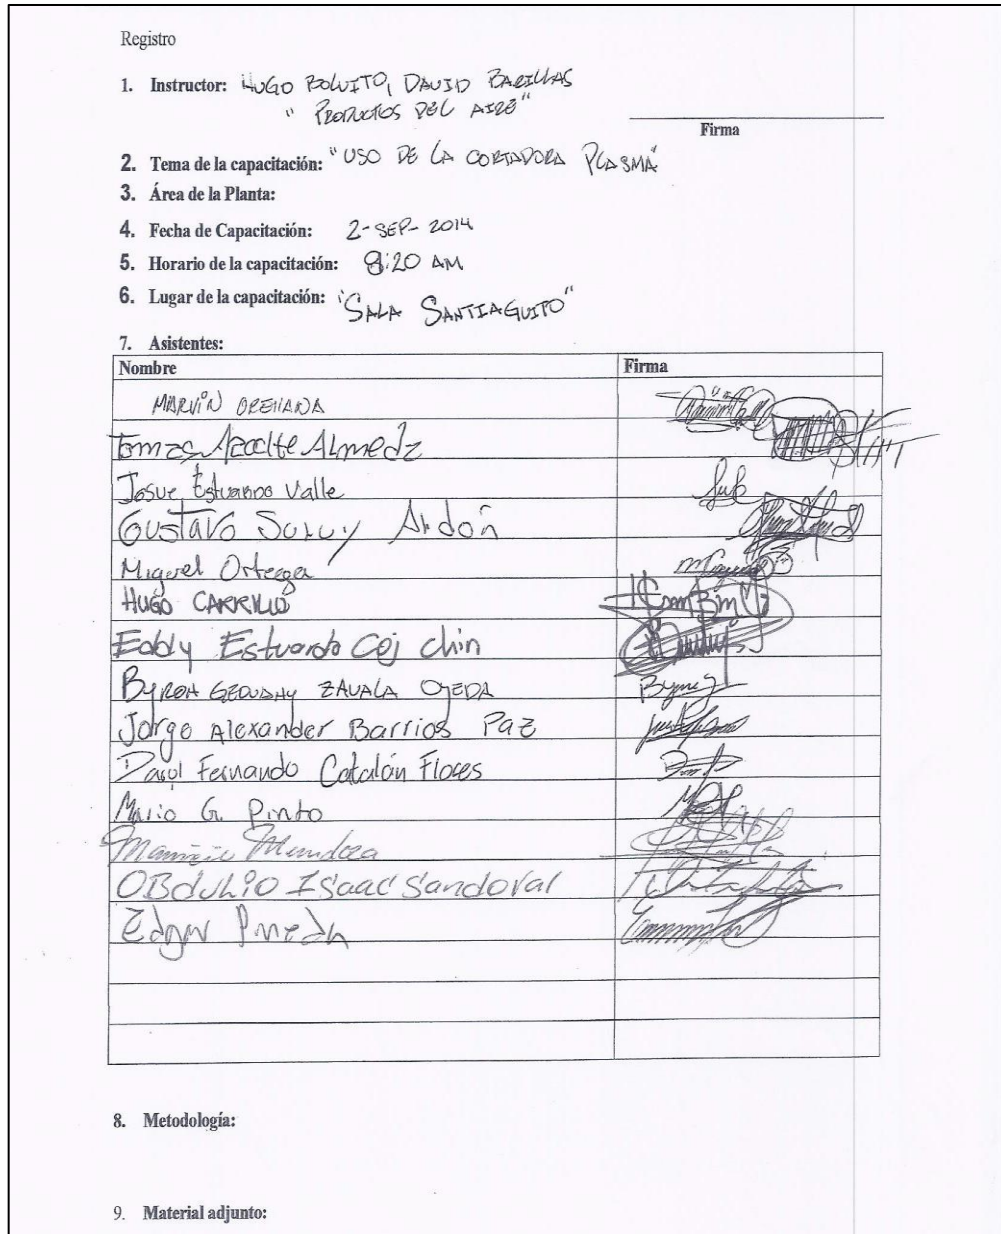 Registro
1. Instructor: HUGO BOLVITO, DAVID BARILLAS
" PRODUCTOS DEL AIRE"
Firma
2. Tema de la capacitación: "USO DE LA CORTADORA PLASMA"
3. Área de la Planta:
4. Fecha de Capacitación: 2-SEP-2014
5. Horario de la capacitación: 8:20 AM
6. Lugar de la capacitación: "SALA SANTIAGUITO"
7. Asistentes:
Nombre Firma
MARVIN ORELLANA
Tomas Almeda
Josue Estuardo Valle
Gustavo Ardón
Miguel Ortega
HUGO CARRILLO
Eddy Estuardo Coj chin
BYRON GEOVANY ZAVALA OJEDA
Jorge Alexander Barrios Paz
Fernando Catalán Flores
Mario G. Pinto
Mendoza
OBdulio Isaac Sandoval
Edgar Pineda
8. Metodología:
9. Material adjunto: